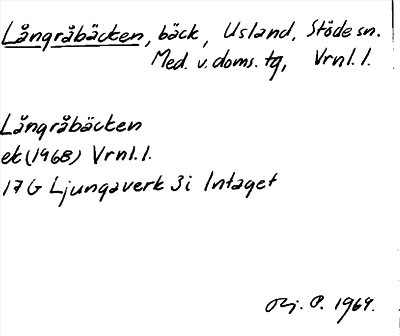 Långråbäcken, bäck, Usland, Stöde sn.
Med. v. doms. tg, Vrnl. l.
Långråbäcken
ek (1968) Vrnl. l.
17 G Ljungaverk 3 i Intaget
P. 1969.